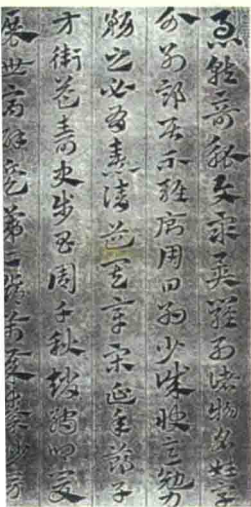 急就奇觚與眾異羅列諸物名姓字
分別部居不雜廁用日約少誠快意勉力
務之必有憙請道其章宋延年鄭子
方衛益壽史步昌周千秋趙孺卿爰
展世高辟兵第二鄧萬歲秦妙房